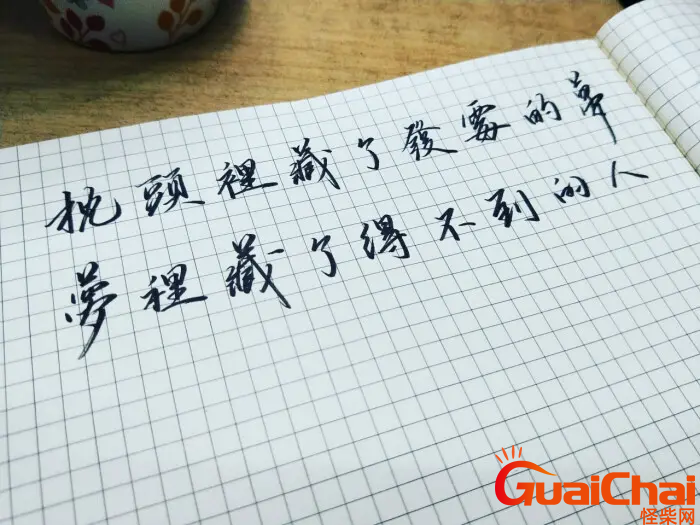 枕頭裡藏了發霉的夢
夢裡藏了得不到的人
GuaiChai
怪柴网